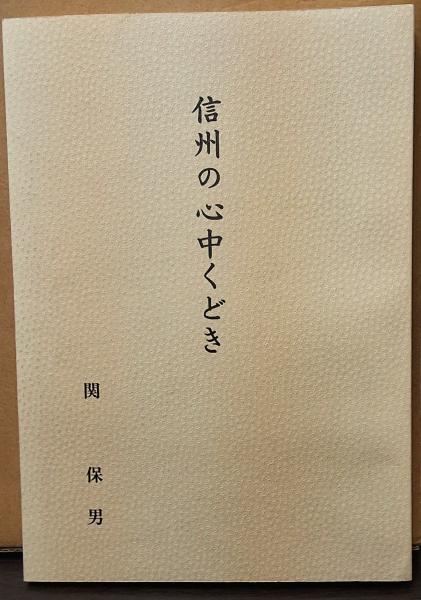 信州の心中くどき
関保男